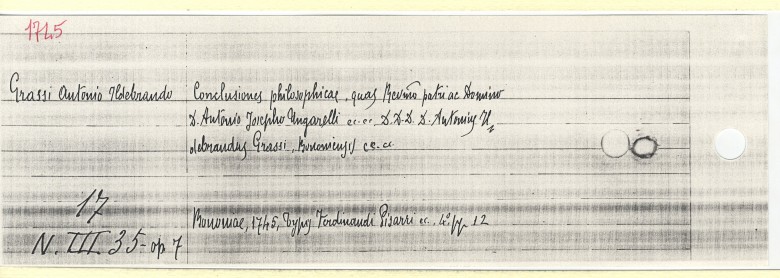 1745
Grassi Antonio Ildebrando
Conclusiones philosophicae, quas Revmo patri ac Domino
D. Antonio Josepho Ungarelli ec. ec. D. D. D. D. Antonius Il=
debrandus Grassi, Bononiensis ec. ec.
17
N. III 35 - op 7
Bononiae, 1745, Typis Ferdinandi Pisarri ec. 4° pp. 12